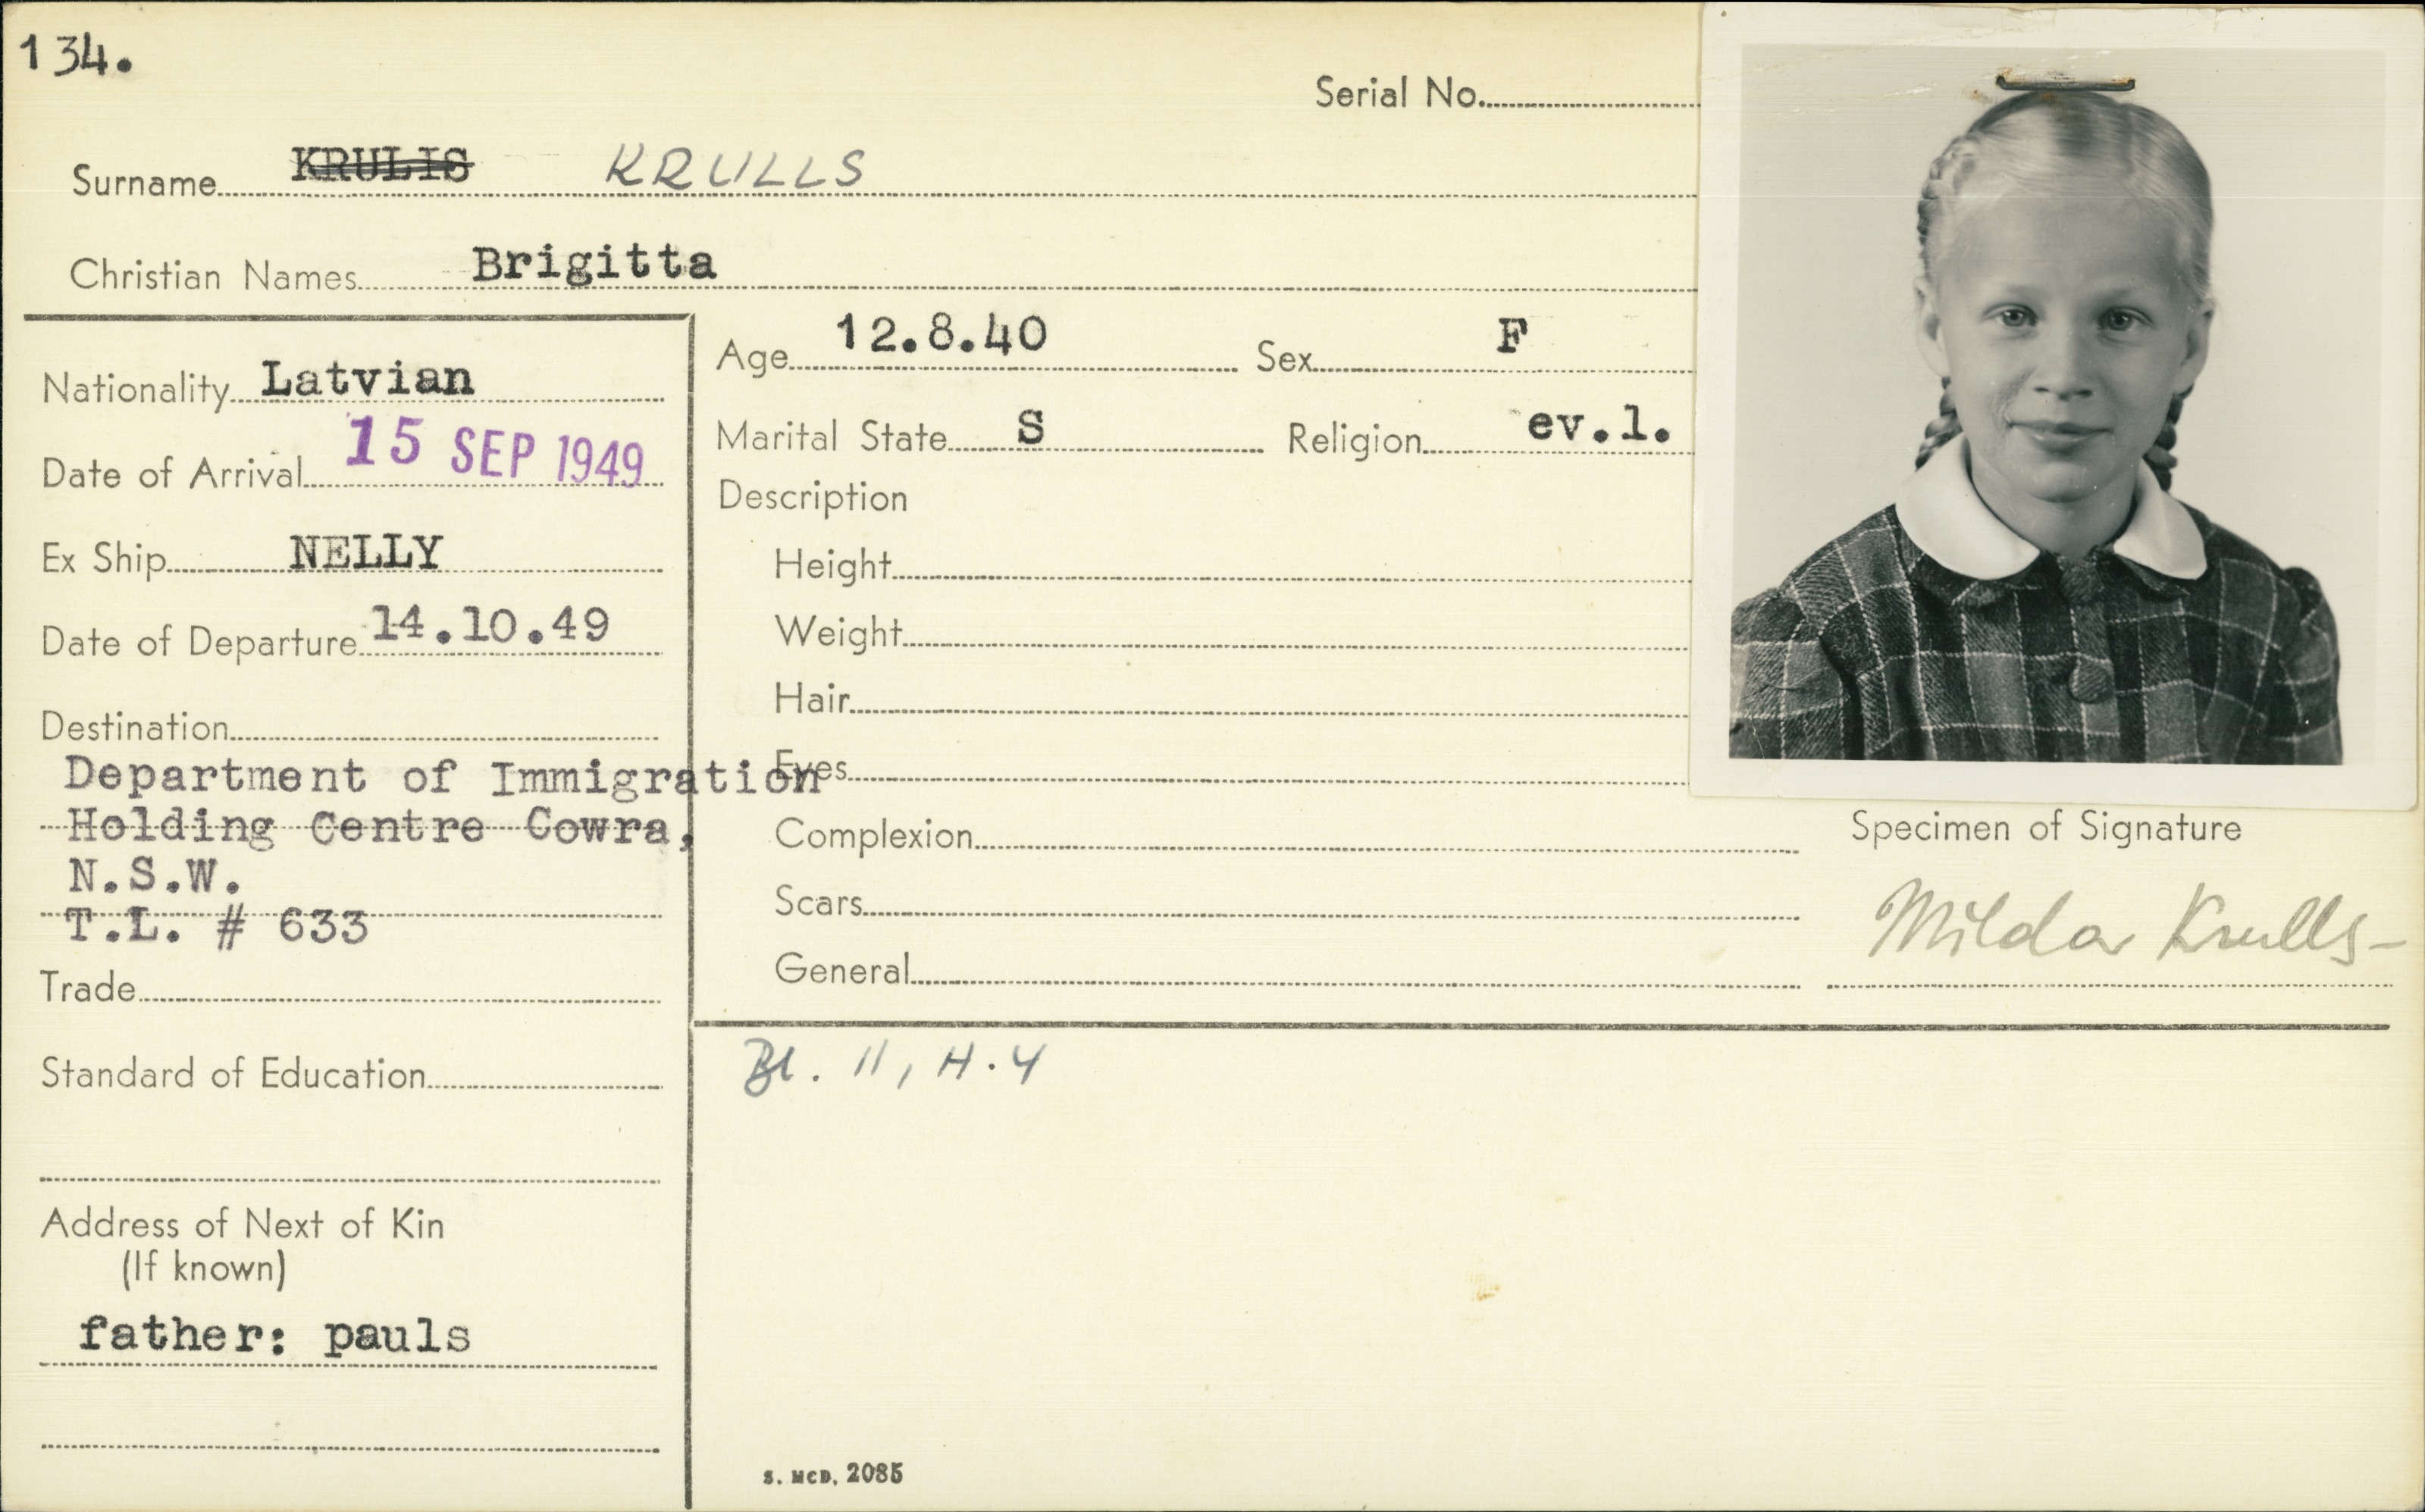 134.
Serial No.
Surname KRULIS KRULLS
Christian Names Brigitta
Nationality Latvian
Date of Arrival 15 SEP 1949
Ex Ship NELLY
Date of Departure 14.10.49
Destination
Department of Immigration
Holding Centre Cowra,
N.S.W.
T.L. # 633
Trade
Standard of Education
Address of Next of Kin
(If known)
father: pauls
Age 12.8.40 Sex F
Marital State S Religion ev.l.
Description
Height
Weight
Hair
Eyes
Complexion
Scars
General
Specimen of Signature
Milda Krulls-
Bl. 11, H.4
S. MCD. 2085